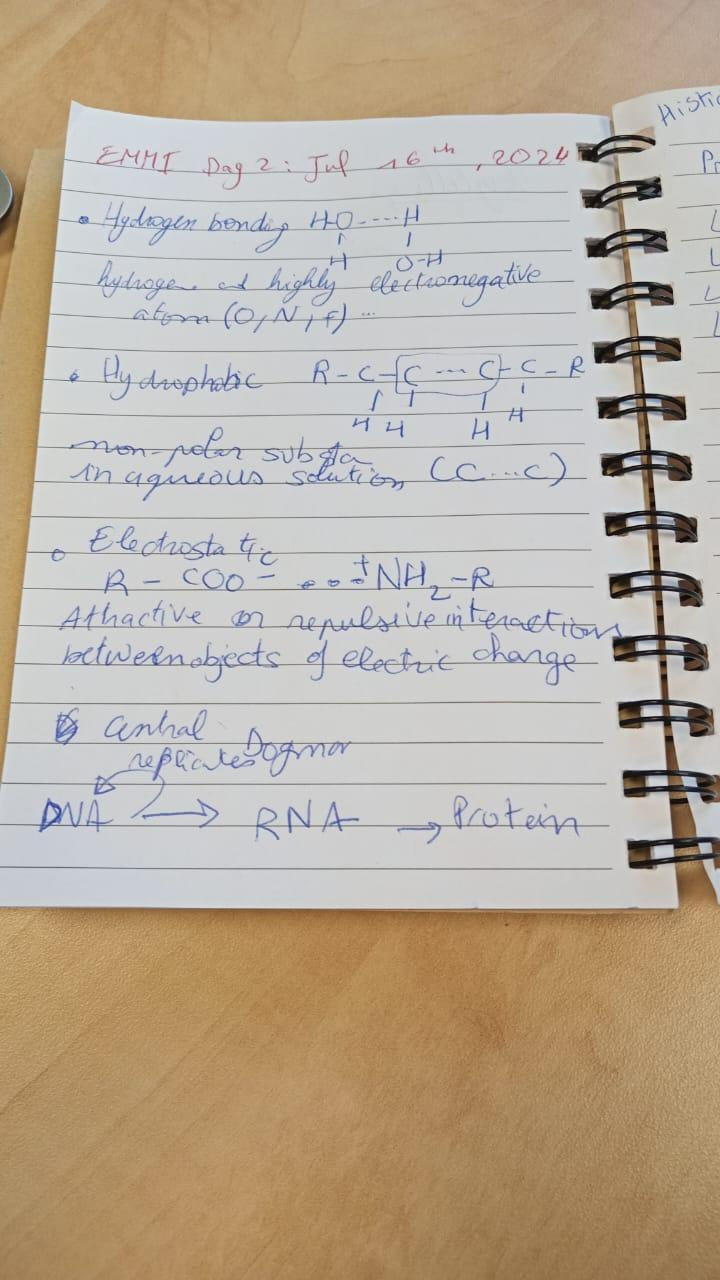 EMMI Day 2: Jul 16th, 2024
• Hydrogen bonding HO----H
H O-H
hydrogen and highly electromegative
atom (O, N, F) ...
• Hydrophobic R-C-C---C-C-R
H H H H
non-polar substa
in aqueous solution (C...C)
Electrostatic
R - COO- ...+NH2-R
Attractive or repulsive interactions
between objects of electric charge
Central
replicates Dogmar
DNA → RNA → Protein
Histi
Pr